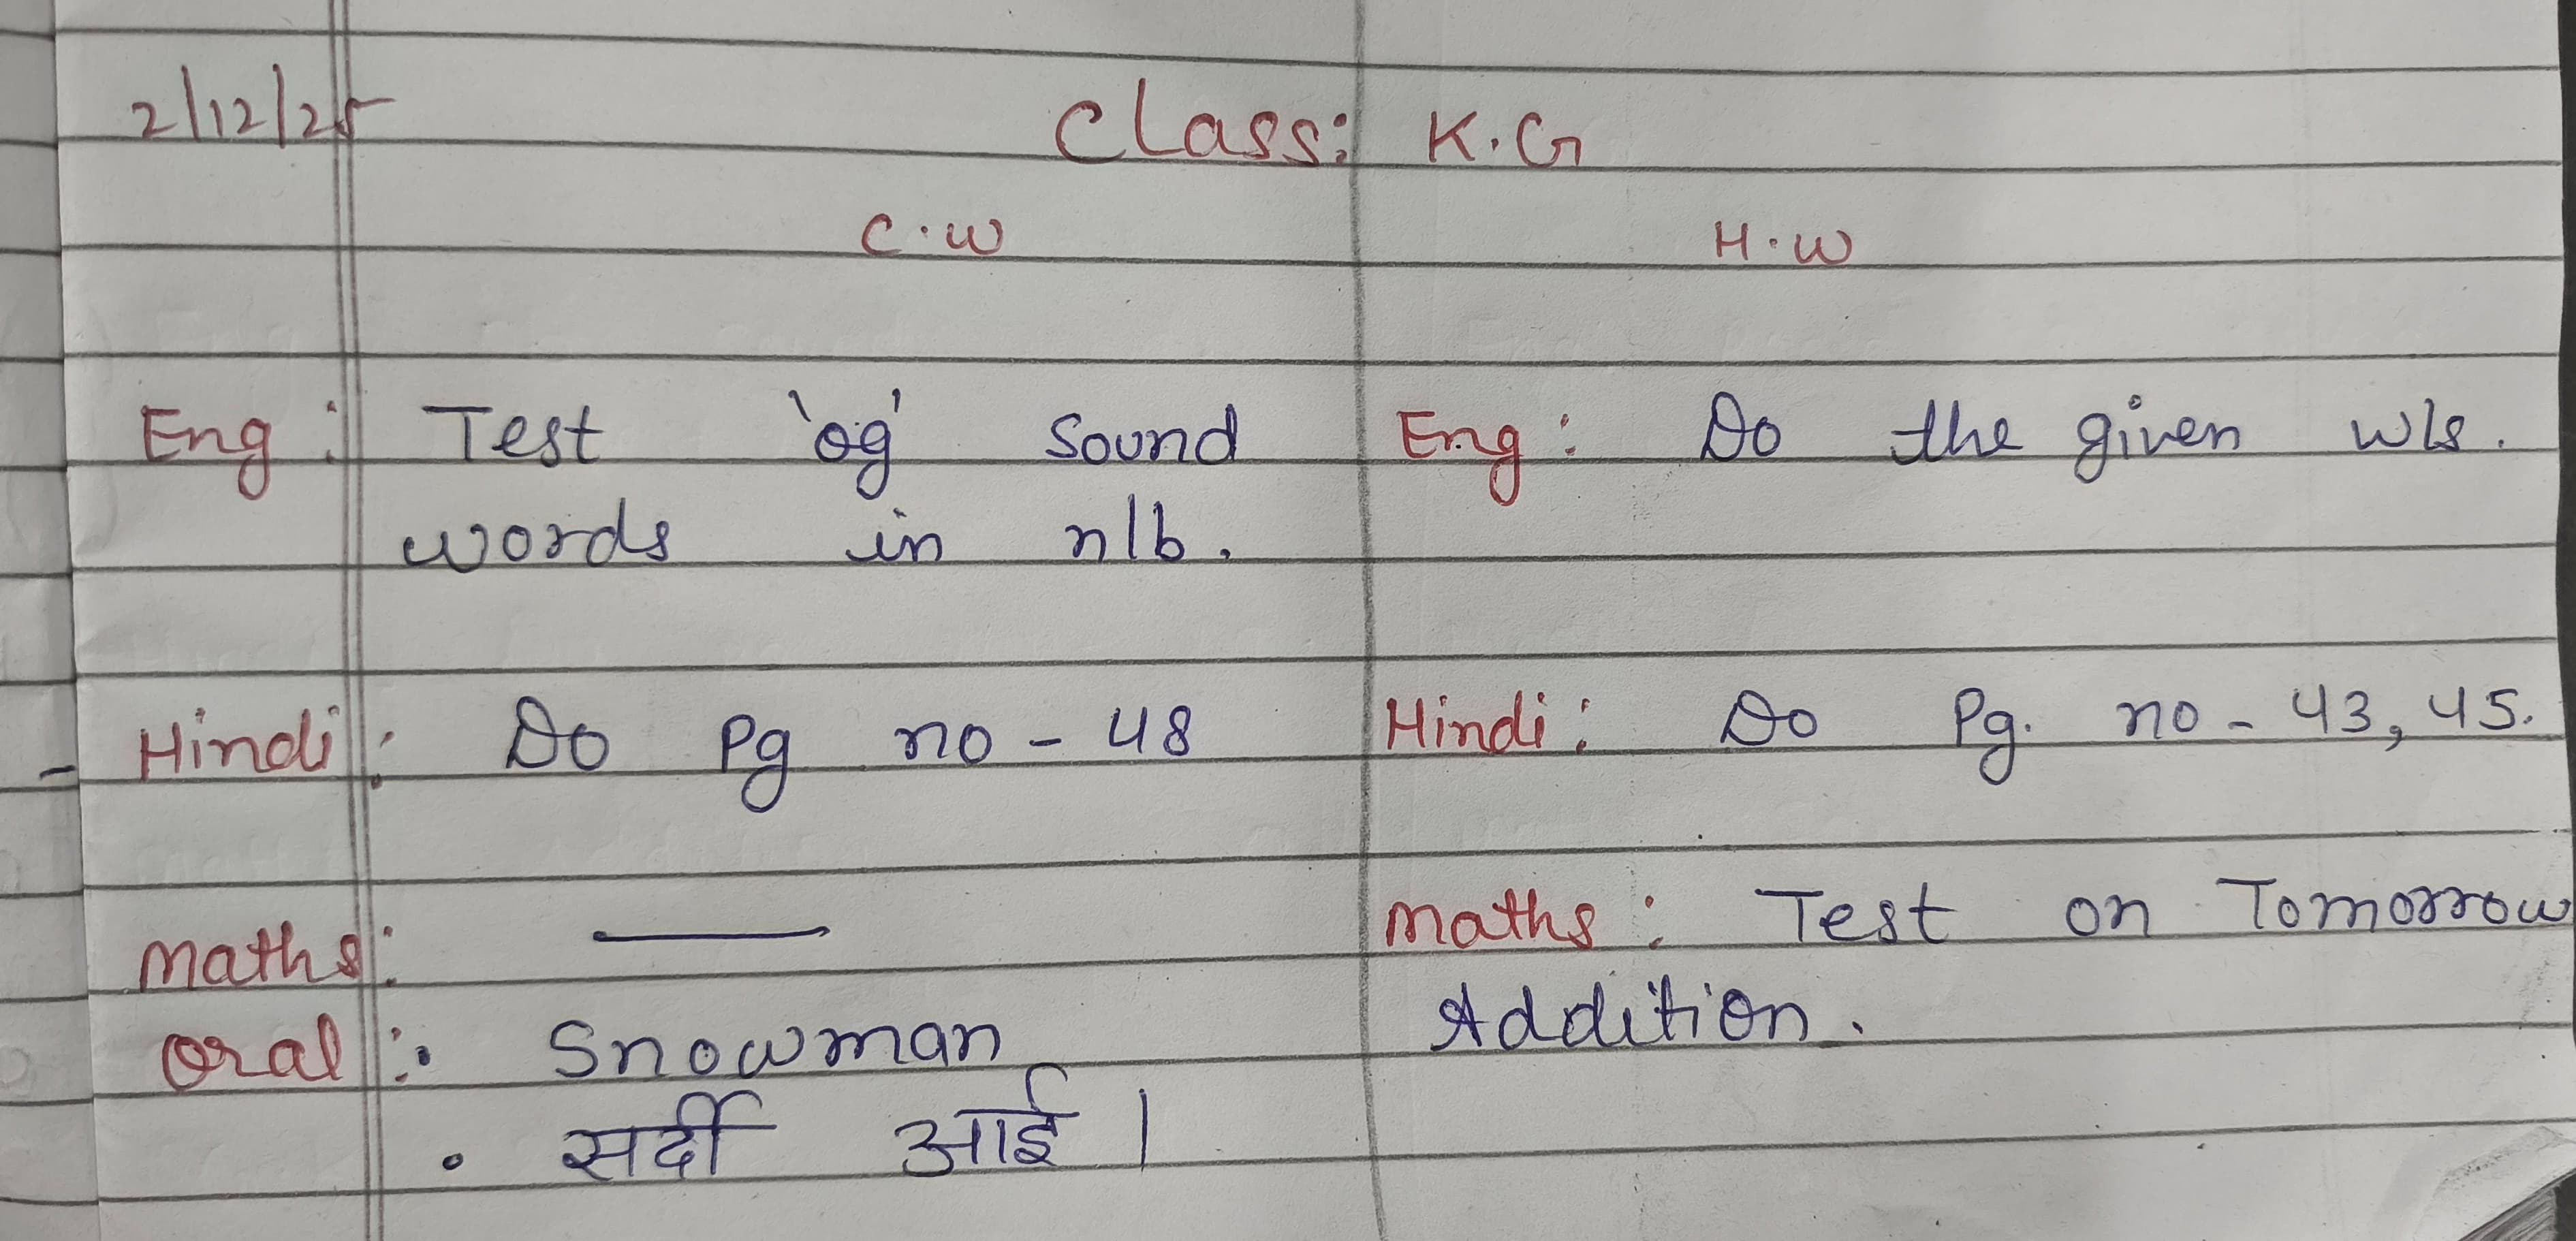 2/12/25
Class: K.G
C.W
H.W
Eng: Test 'og' Sound
words in n/b.
Hindi: Do Pg no - 48
Maths: ——
Oral: • Snowman
• सर्दी आई।
Eng: Do the given w/s.
Hindi: Do Pg. no - 43, 45.
Maths: Test on Tomorrow
Addition.